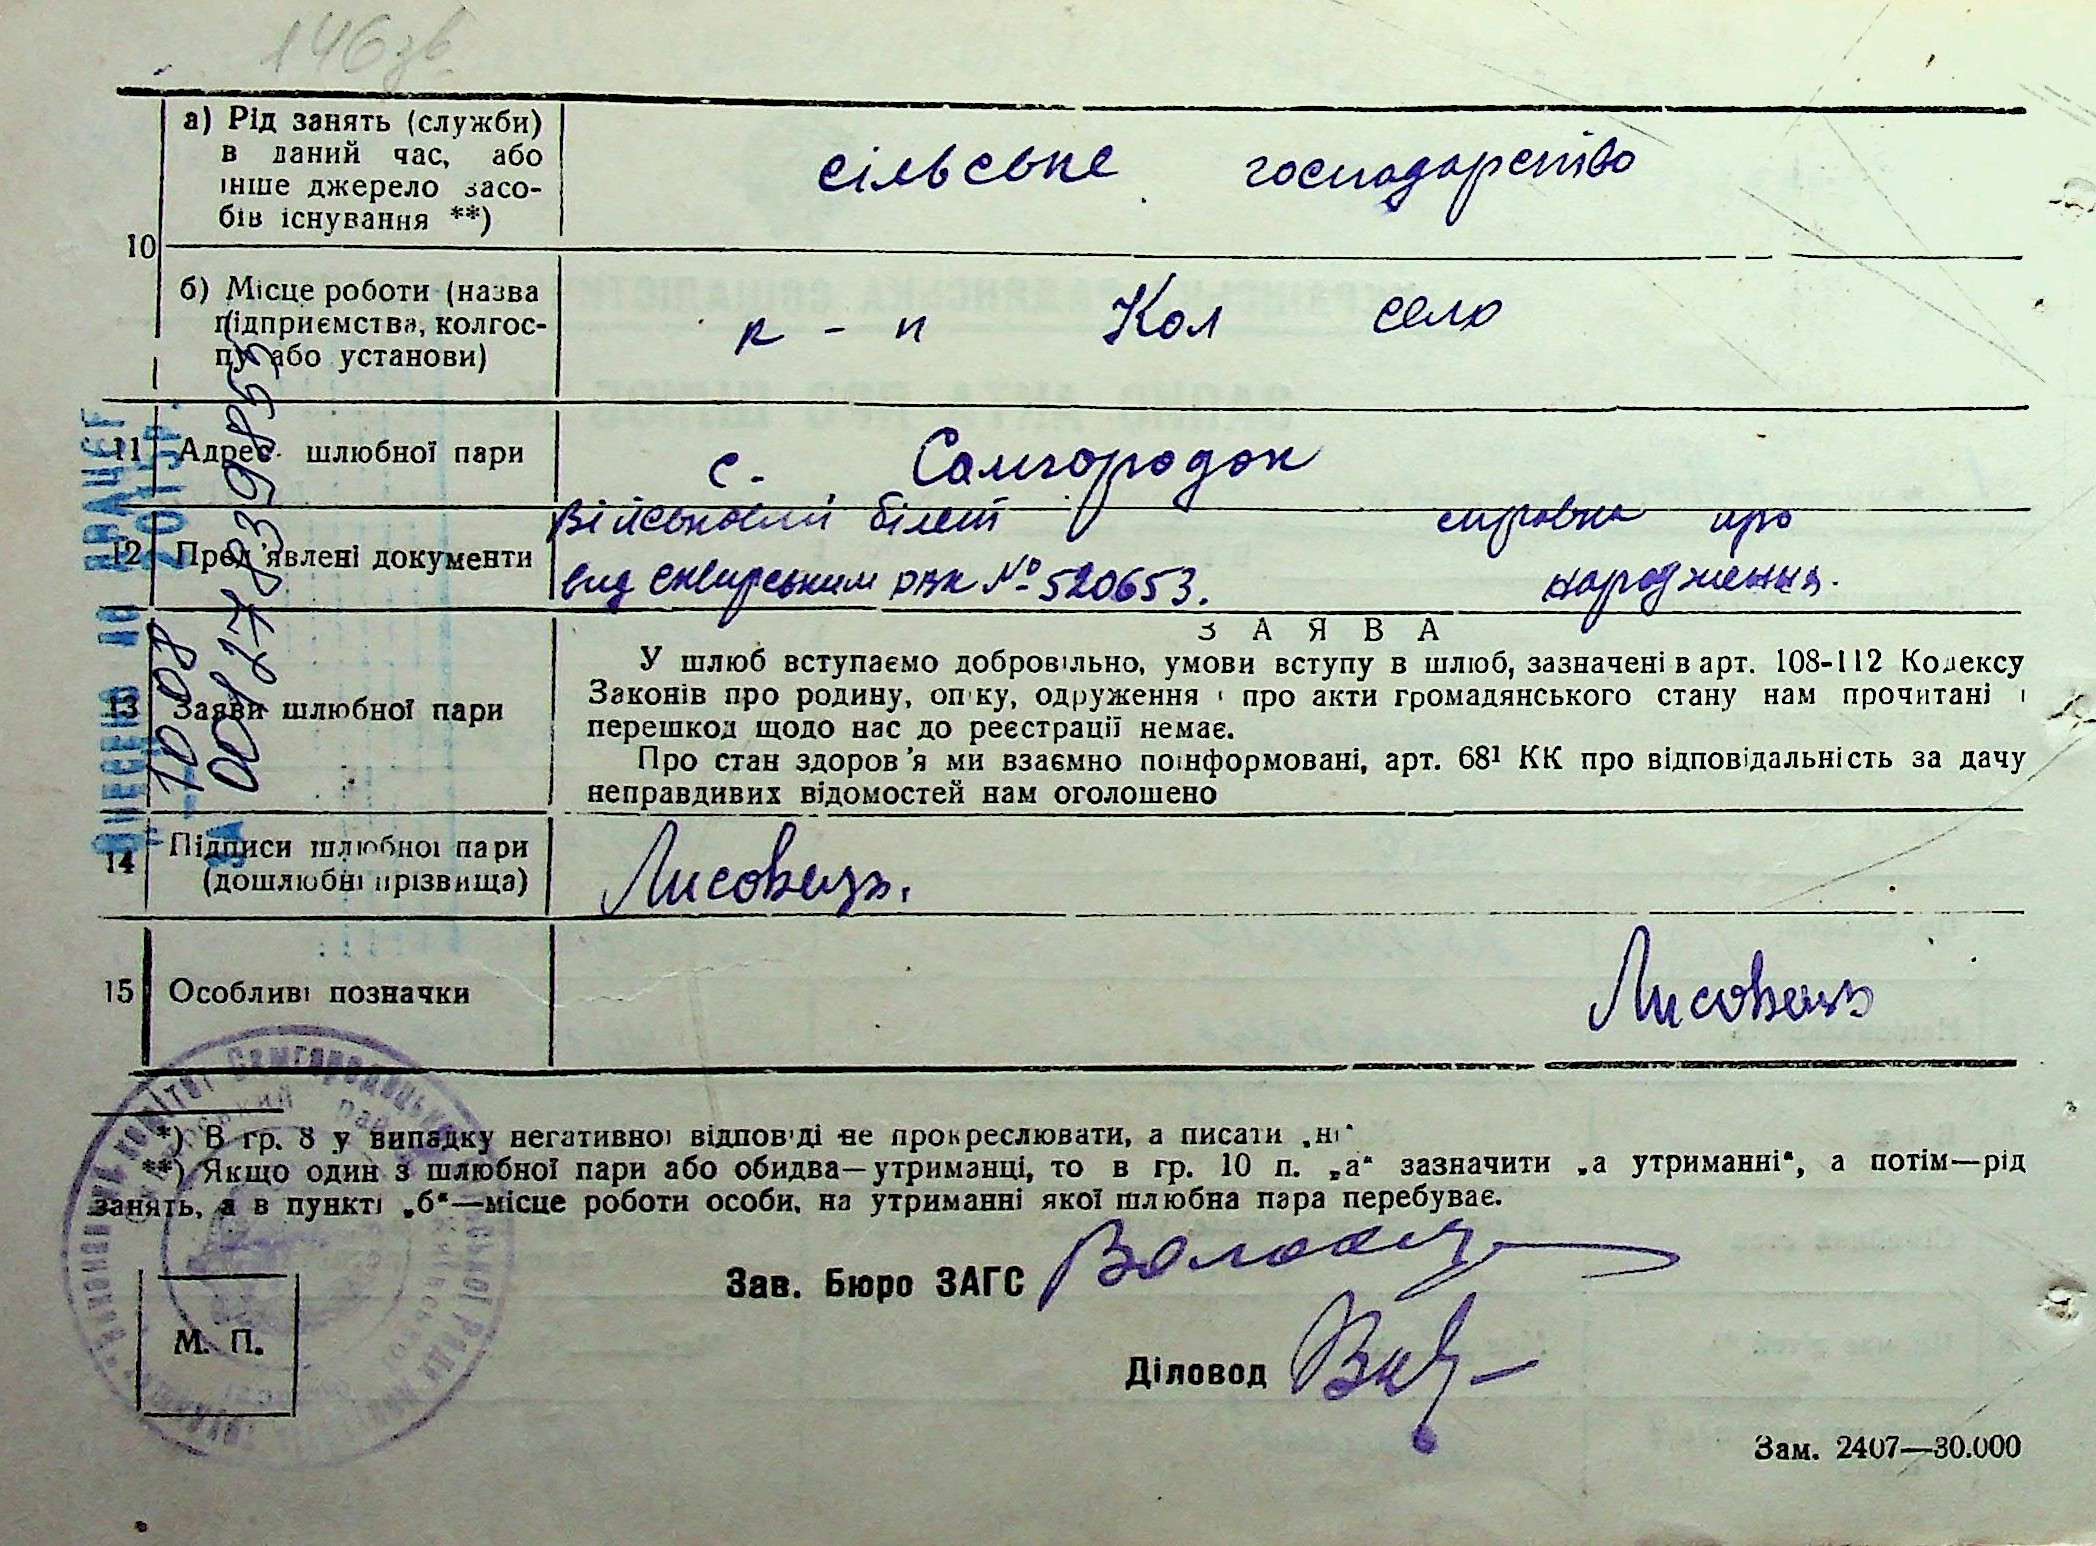 146зв
а) Рід занять (служби) в даний час, або інше джерело засобів існування **)
сільське господарство
10
б) Місце роботи (назва підприємства, колгоспу або установи)
к-п Кол село
11 Адрес шлюбної пари
с. Самгородок
12 Пред'явлені документи
Військовий білет
вид Сквирським РВК № 520653.
справка про
народження.
13 Заяви шлюбної пари
ЗАЯВА
У шлюб вступаємо добровільно, умови вступу в шлюб, зазначені в арт. 108-112 Кодексу
Законів про родину, опіку, одруження і про акти громадянського стану нам прочитані і
перешкод щодо нас до реєстрації немає.
Про стан здоров'я ми взаємно поінформовані, арт. 68¹ КК про відповідальність за дачу
неправдивих відомостей нам оголошено
14 Підписи шлюбної пари
(дошлюбні прізвища)
Лисовець.
15 Особливі позначки
Лисовець
ВНЕСЕНО ДО ДРАЦСГ
10 08 2015р.
ЗА 00127839855
*) В гр. 8 у випадку негативної відповіді не прокреслювати, а писати „ні“
**) Якщо один з шлюбної пари або обидва—утриманці, то в гр. 10 п. „а“ зазначити „а утриманні“, а потім—рід
занять, а в пункті „б“—місце роботи особи, на утриманні якої шлюбна пара перебуває.
Зав. Бюро ЗАГС
М. П.
Діловод
Зам. 2407—30.000